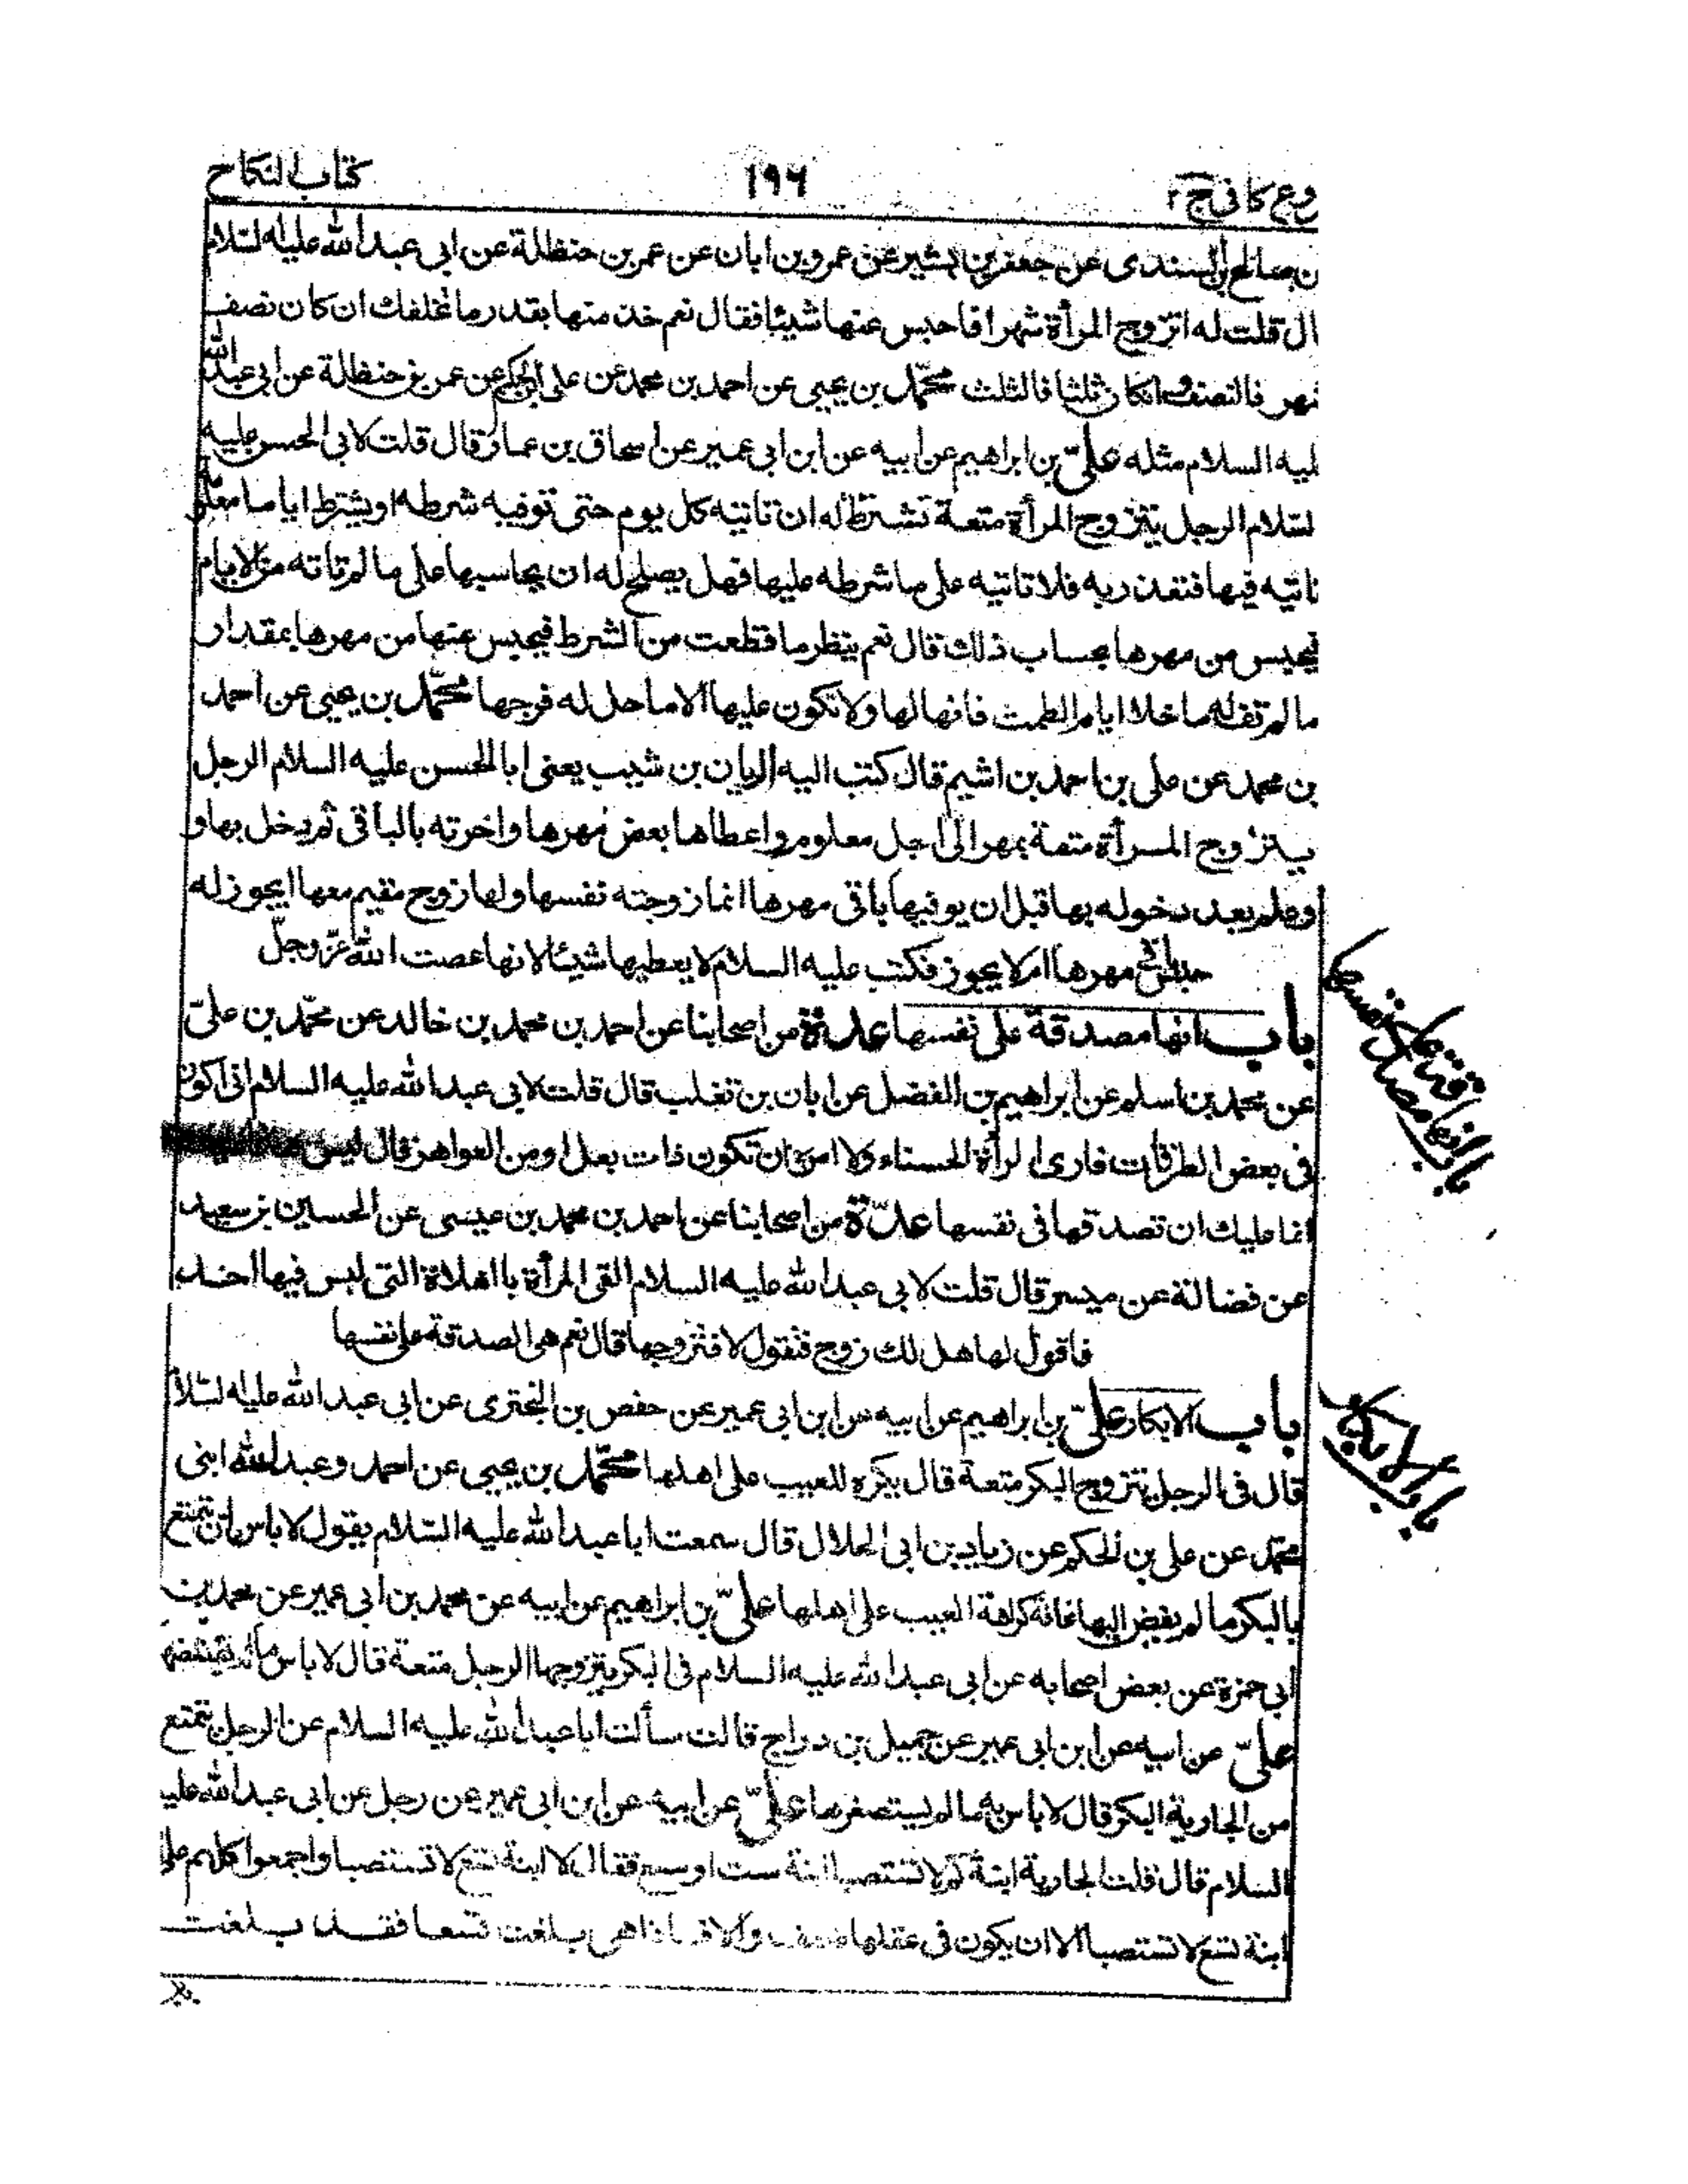 وع كافى ج ٢ ١٩٦ كتاب النكاح
ن صالح بن السندى عن جعفر بن بشير عن عمرو بن ابان عن عمر بن حنظلة عن ابى عبد الله عليه السلام
ال قلت له اتزوج المرأة شهرا فاحبس عنها شيئا فقال نعم خذ منها بقدر ما تخلفك ان كان نصف
شهر فالنصف وانكان ثلثا فالثلث محمد بن يحيى عن احمد بن محمد عن على بن الحكم عن عمر بن حنظلة عن ابى عبد الله
ليه السلام مثله على بن ابراهيم عن ابيه عن ابن ابى عمير عن اسحاق بن عمار قال قلت لابى الحسن عليه
لسلام الرجل يتزوج المرأة متعة تشترط له ان تاتيه كل يوم حتى توفيه شرطه او يشترط اياما معلو
تاتيه فيها فتغدر به فلا تاتيه على ما شرطه عليها فهل يصلح له ان يحاسبها على ما لم تاته من الايام
فيحبس من مهرها بحساب ذلك قال نعم ينظر ما قطعت من الشرط فيحبس عنها من مهرها بمقدار
ما لم تف له ما خلا ايام الطمث فانها لها ولا تكون عليها الا ما حل له فرجها محمد بن يحيى عن احمد
بن محمد عن على بن احمد بن اشيم قال كتب اليه الريان بن شبيب يعنى ابا الحسن عليه السلام الرجل
يتزوج المرأة متعة بمهر الى اجل معلوم واعطاها بعض مهرها واخرته بالباقى ثم دخل بها و
وعلم بعد دخوله بها قبل ان يوفيها باقى مهرها انما زوجته نفسها ولها زوج مقيم معها ايجوز له
حبس باقى مهرها ام لا يجوز فكتب عليه السلام لا يعطيها شيئا لانها عصت الله عز وجل
باب انها مصدقة على نفسها عدة من اصحابنا عن احمد بن محمد بن خالد عن محمد بن على
عن محمد بن اسلم عن ابراهيم بن الفضل عن ابان بن تغلب قال قلت لابى عبد الله عليه السلام انى اكون
فى بعض الطرقات فارى المرأة الحسناء ولا امن ان تكون ذات بعل او من العواهر قال ليس
انما عليك ان تصدقها فى نفسها عدة من اصحابنا عن احمد بن محمد بن عيسى عن الحسين بن سعيد
عن فضالة عن ميسر قال قلت لابى عبد الله عليه السلام القى المرأة بالفلاة التى ليس فيها احد
فاقول لها هل لك زوج فتقول لا فتزوجها قال نعم هى المصدقة على نفسها
باب الابكار على بن ابراهيم عن ابيه عن ابن ابى عمير عن حفص بن البخترى عن ابى عبد الله عليه السلام
قال فى الرجل يتزوج البكر متعة قال يكره للعيب على اهلها محمد بن يحيى عن احمد وعبد الله ابنى
محمد عن على بن الحكم عن زياد بن ابى الحلال قال سمعت ابا عبد الله عليه السلام يقول لا باس بان يتمتع
بالبكر ما لم يفض اليها مخافة كراهة العيب على اهلها على بن ابراهيم عن ابيه عن محمد بن ابى عمير عن محمد بن
ابى حمزة عن بعض اصحابه عن ابى عبد الله عليه السلام فى البكر يتزوجها الرجل متعة قال لا باس ما لم يقتضها
على عن ابيه عن ابن ابى عمير عن جميل بن دراج قالت سألت ابا عبد الله عليه السلام عن الرجل يتمتع
من الجارية البكر قال لا باس به ما لم يستصغرها على عن ابيه عن ابن ابى عمير عن رجل عن ابى عبد الله عليه
السلام قال قلت الجارية ابنة كم لا تستصبا ابنة ست او سبع فقال لا ابنة تسع لا تستصبا واجمعوا كلهم على
ابنة تسع لا تستصبا الا ان يكون فى عقلها ضعف والا فاذا هى بلغت تسعا فقد بلغت
باب انها مصدقة على نفسها
باب الابكار